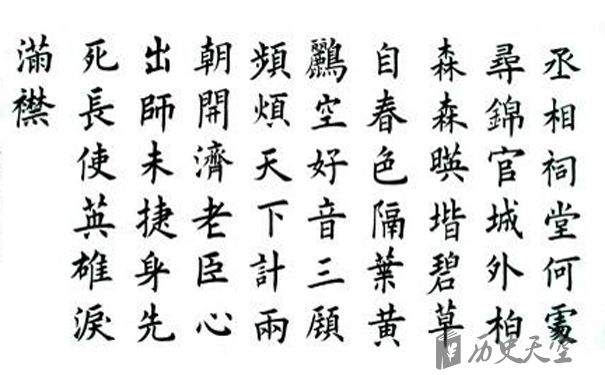 丞相祠堂何處
尋錦官城外柏
森森暎堦碧草
自春色隔葉黃
鸝空好音三顧
頻煩天下計兩
朝開濟老臣心
出師未捷身先
死長使英雄淚
滿襟
历史天空